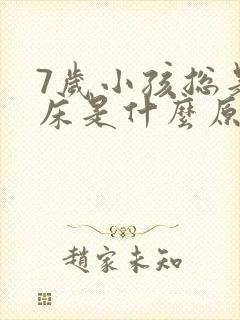 7歲小孩總是
床是什麼原
趙家未知